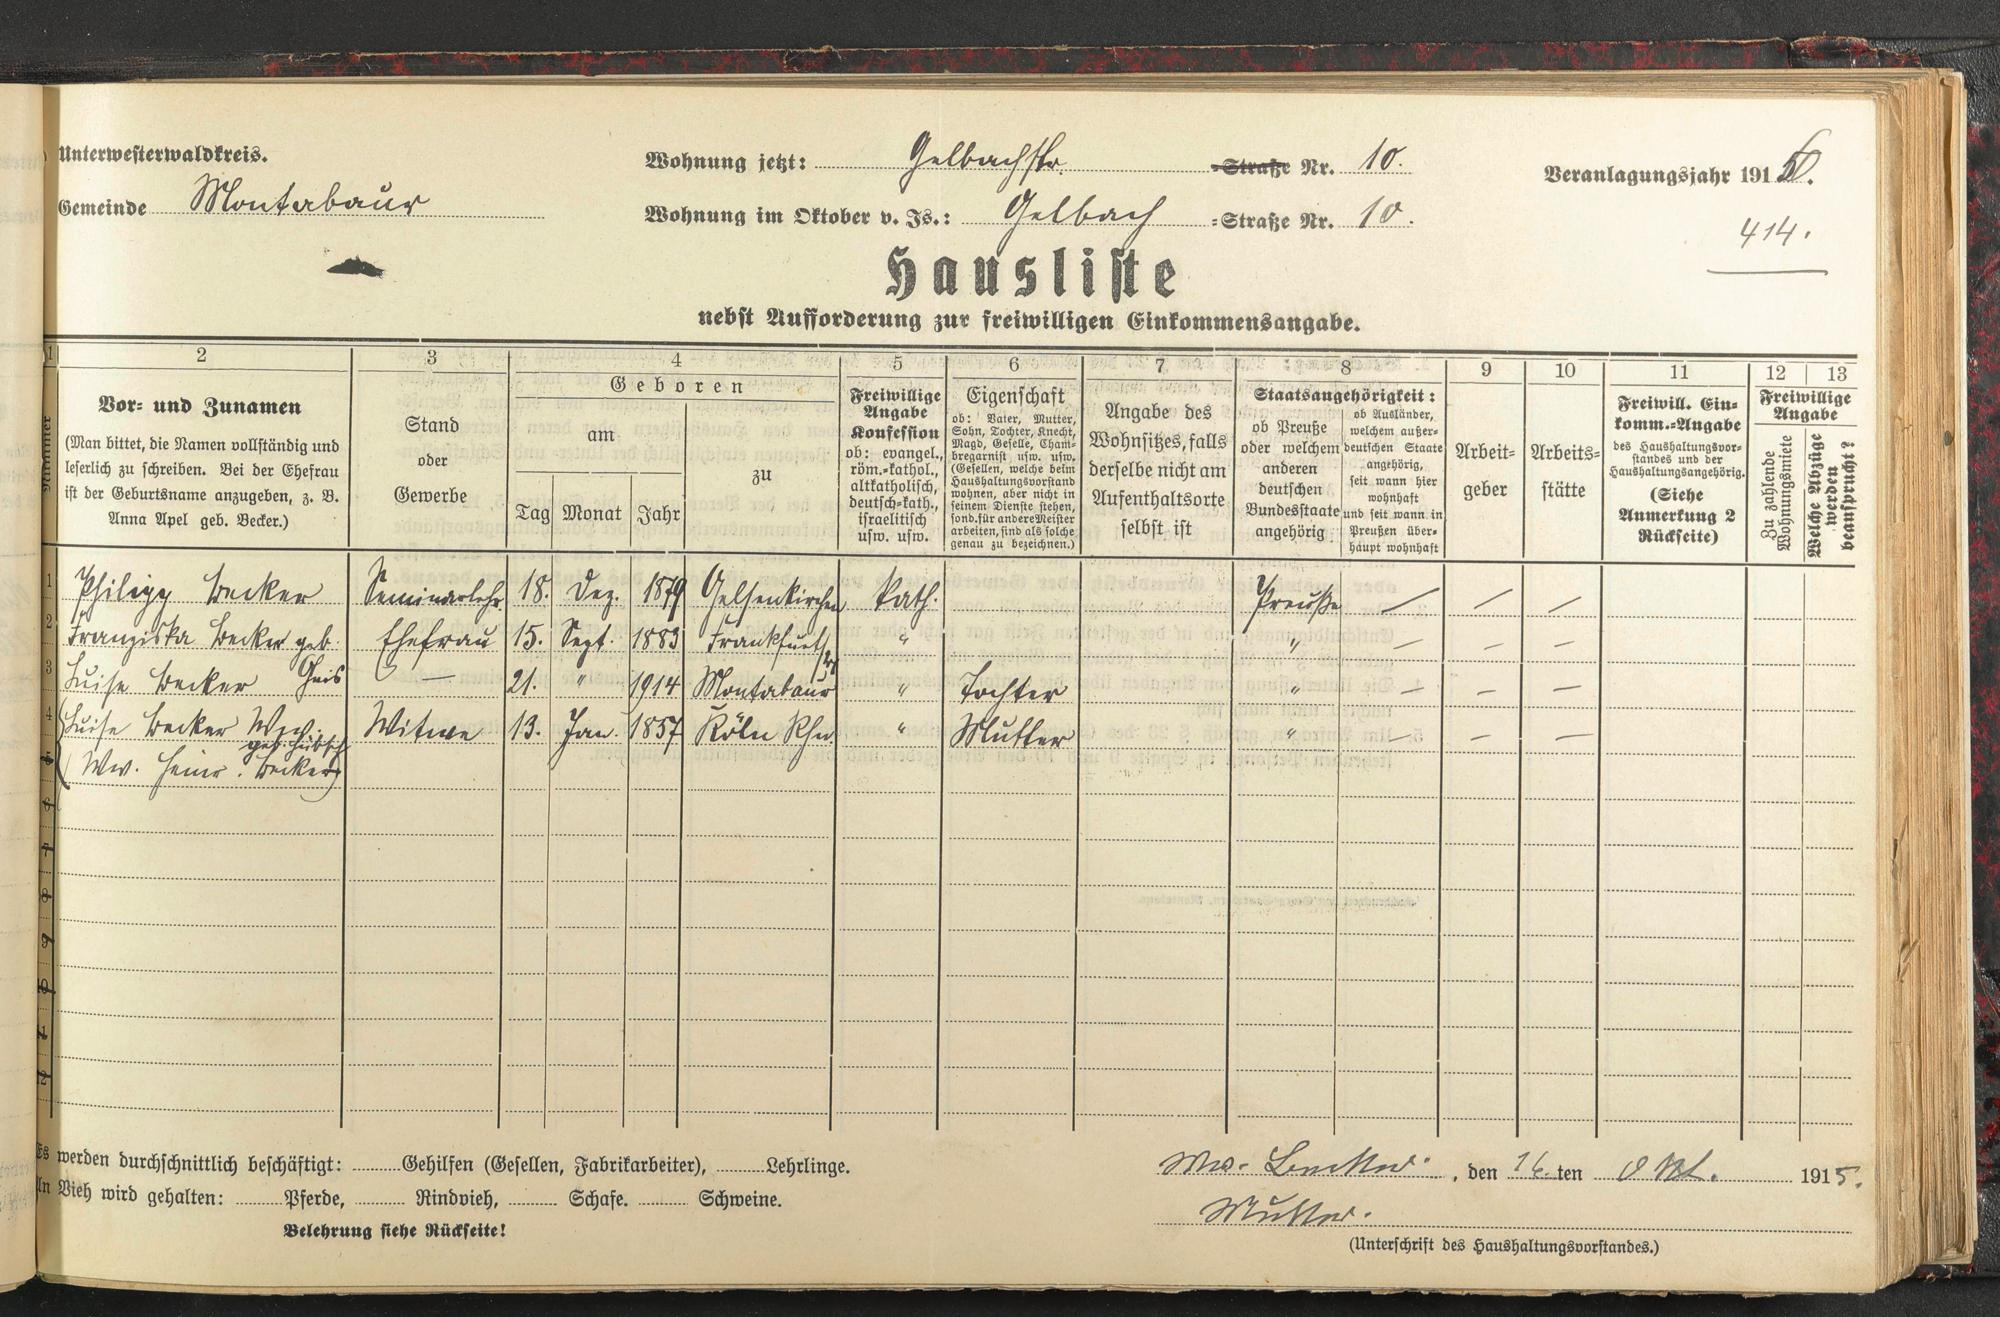 Unterwesterwaldkreis.
Gemeinde Montabaur
Wohnung jetzt: Gelbachstr. -Straße Nr. 10.
Wohnung im Oktober v. Js.: Gelbach =Straße Nr. 10.
Veranlagungsjahr 1916.
414.
Hausliste
nebst Aufforderung zur freiwilligen Einkommensangabe.
1 2 3 4 5 6 7 8 9 10 11 12 13
Nummer
Vor= und Zunamen
(Man bittet, die Namen vollständig und
leserlich zu schreiben. Bei der Ehefrau
ist der Geburtsname anzugeben, z. B.
Anna Apel geb. Becker.)
Stand
oder
Gewerbe
Geboren
am
Tag Monat Jahr
zu
Freiwillige
Angabe
Konfession
ob: evangel.,
röm.=kathol.,
altkatholisch,
deutsch=kath.,
israelitisch
usw. usw.
Eigenschaft
ob: Vater, Mutter,
Sohn, Tochter, Knecht,
Magd, Geselle, Cham=
bregarnist usw. usw.
(Gesellen, welche beim
Haushaltungsvorstand
wohnen, aber nicht in
seinem Dienste stehen,
sond. für andere Meister
arbeiten, sind als solche
genau zu bezeichnen.)
Angabe des
Wohnsitzes, falls
derselbe nicht am
Aufenthaltsorte
selbst ist
Staatsangehörigkeit:
ob Preuße
oder welchem
anderen
deutschen
Bundesstaate
angehörig
ob Ausländer,
welchem außer=
deutschen Staate
angehörig,
seit wann hier
wohnhaft
und seit wann in
Preußen über=
haupt wohnhaft
Arbeit=
geber
Arbeits=
stätte
Freiwill. Ein=
komm.=Angabe
des Haushaltungsvor=
standes und der
Haushaltungsangehörig.
(Siehe
Anmerkung 2
Rückseite)
Freiwillige
Angabe
Zu zahlende
Wohnungsmiete
Welche Abzüge
werden
beansprucht?
1 Philipp Becker Seminarlehr. 18. Dez. 1879 Gelsenkirchen kath. Preuße — — —
2 Franziska Becker geb. Ehefrau 15. Sept. 1883 Frankfurt " " — — —
3 Luise Becker Geis — 21. " 1914 Montabaur " Tochter " — — —
4 Luise Becker Wwe. Witwe 13. Jan. 1857 Köln Rhn. " Mutter " — — —
5 (Ww. Heinr. Becker)
6
7
8
9
10
11
12
Es werden durchschnittlich beschäftigt: Gehilfen (Gesellen, Fabrikarbeiter), Lehrlinge.
An Vieh wird gehalten: Pferde, Rindvieh, Schafe. Schweine.
Belehrung siehe Rückseite!
, den 16.ten Okt. 1915.
Mutter.
(Unterschrift des Haushaltungsvorstandes.)